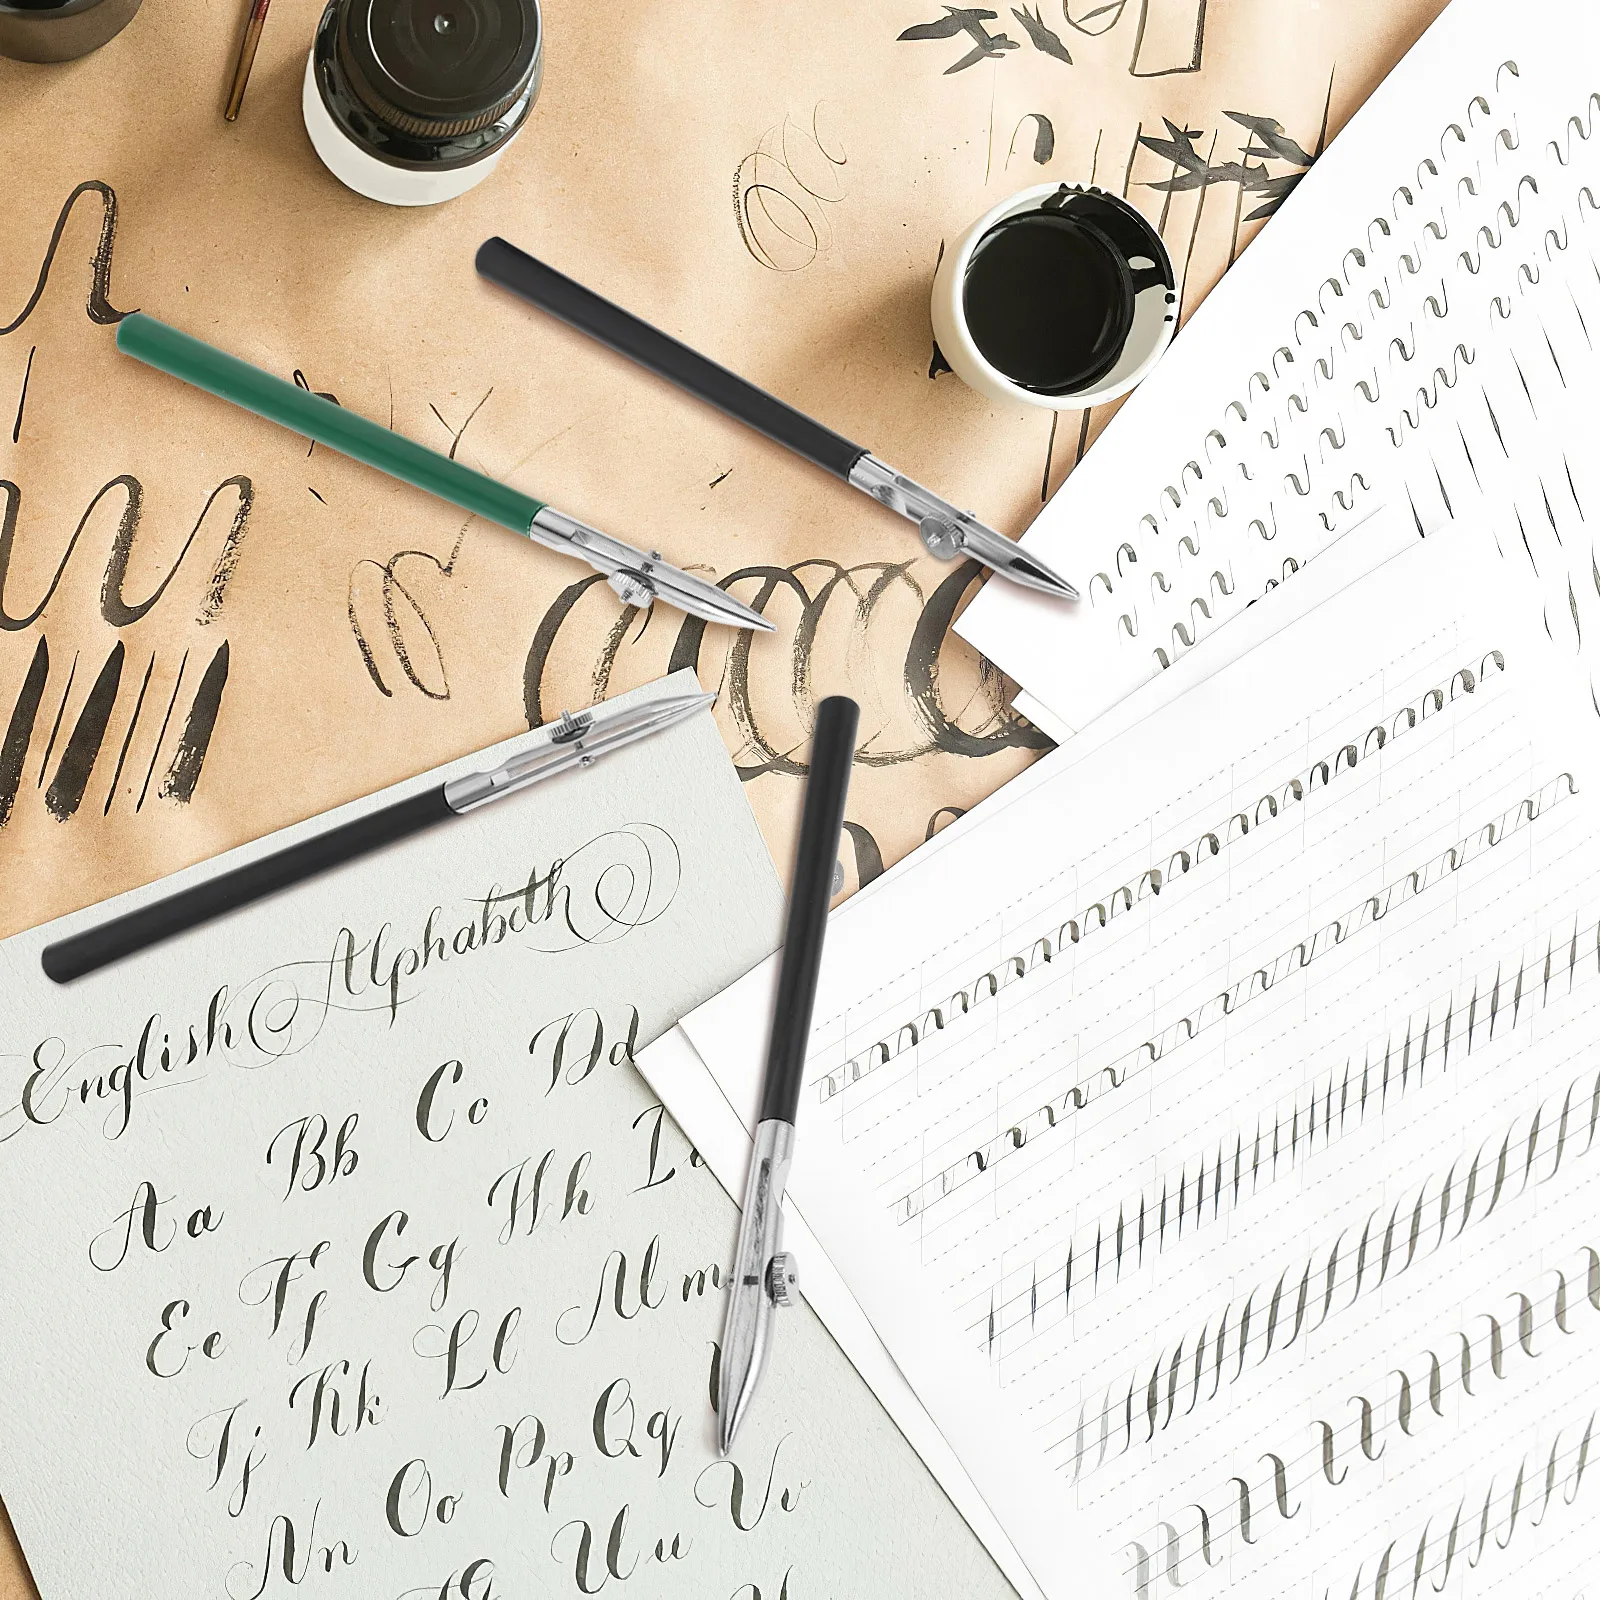 English Alphabeth
Aa Bb Cc Dd
Ee Ff Gg Hh I
Jj Kk Ll M m
Nn Oo Pp Qq
Uu Vv